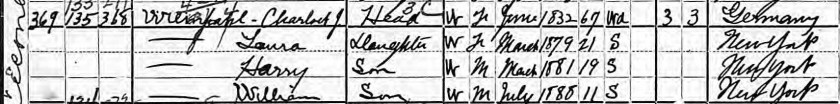 369 135 368 Charlock J Head W F June 1832 67 Wd 3 3 Germany
Laura Daughter W F March 1879 21 S New York
Harry Son W M Mach 1881 19 S New York
William Son W M July 1888 11 S New York